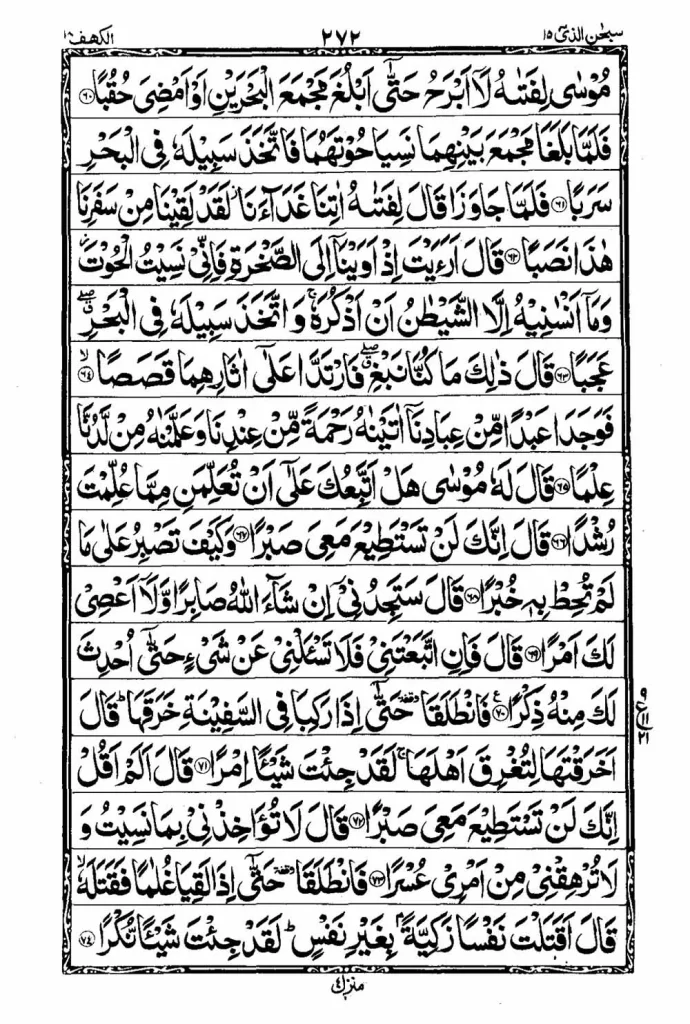 سبحٰن الذی ۱۵ ۲۷۲ الکھف ۱۸
مُوْسٰى لِفَتٰىهُ لَاۤ اَبْرَحُ حَتّٰۤى اَبْلُغَ مَجْمَعَ الْبَحْرَيْنِ اَوْ اَمْضِىَ حُقُبًا ﴿۶۰﴾
فَلَمَّا بَلَغَا مَجْمَعَ بَيْنِهِمَا نَسِيَا حُوْتَهُمَا فَاتَّخَذَ سَبِيْلَهٗ فِى الْبَحْرِ
سَرَبًا ﴿۶۱﴾ فَلَمَّا جَاوَزَا قَالَ لِفَتٰىهُ اٰتِنَا غَدَآءَنَا ؗ لَقَدْ لَقِيْنَا مِنْ سَفَرِنَا
هٰذَا نَصَبًا ﴿۶۲﴾ قَالَ اَرَءَيْتَ اِذْ اَوَيْنَاۤ اِلَى الصَّخْرَةِ فَاِنِّىْ نَسِيْتُ الْحُوْتَ ؗ
وَمَاۤ اَنْسٰنِيْهُ اِلَّا الشَّيْطٰنُ اَنْ اَذْكُرَهٗ ۚ وَاتَّخَذَ سَبِيْلَهٗ فِى الْبَحْرِ ۖۗ
عَجَبًا ﴿۶۳﴾ قَالَ ذٰلِكَ مَا كُنَّا نَبْغِ ۖۗ فَارْتَدَّا عَلٰۤى اٰثَارِهِمَا قَصَصًا ۙ﴿۶۴﴾
فَوَجَدَا عَبْدًا مِّنْ عِبَادِنَاۤ اٰتَيْنٰهُ رَحْمَةً مِّنْ عِنْدِنَا وَعَلَّمْنٰهُ مِنْ لَّدُنَّا
عِلْمًا ﴿۶۵﴾ قَالَ لَهٗ مُوْسٰى هَلْ اَتَّبِعُكَ عَلٰۤى اَنْ تُعَلِّمَنِ مِمَّا عُلِّمْتَ
رُشْدًا ﴿۶۶﴾ قَالَ اِنَّكَ لَنْ تَسْتَطِيْعَ مَعِىَ صَبْرًا ﴿۶۷﴾ وَكَيْفَ تَصْبِرُ عَلٰى مَا
لَمْ تُحِطْ بِهٖ خُبْرًا ﴿۶۸﴾ قَالَ سَتَجِدُنِىْۤ اِنْ شَآءَ اللّٰهُ صَابِرًا وَّلَاۤ اَعْصِىْ
لَكَ اَمْرًا ﴿۶۹﴾ قَالَ فَاِنِ اتَّبَعْتَنِىْ فَلَا تَسْـَٔلْنِىْ عَنْ شَىْءٍ حَتّٰۤى اُحْدِثَ
لَكَ مِنْهُ ذِكْرًا ﴿۷۰﴾ ع فَانْطَلَقَا وقفة حَتّٰۤى اِذَا رَكِبَا فِى السَّفِيْنَةِ خَرَقَهَا ؕ قَالَ
۹ ۱۱ ۲۱
اَخَرَقْتَهَا لِتُغْرِقَ اَهْلَهَا ۚ لَقَدْ جِئْتَ شَيْـًٔا اِمْرًا ﴿۷۱﴾ قَالَ اَلَمْ اَقُلْ
اِنَّكَ لَنْ تَسْتَطِيْعَ مَعِىَ صَبْرًا ﴿۷۲﴾ قَالَ لَا تُؤَاخِذْنِىْ بِمَا نَسِيْتُ وَ
لَا تُرْهِقْنِىْ مِنْ اَمْرِىْ عُسْرًا ﴿۷۳﴾ فَانْطَلَقَا وقفة حَتّٰۤى اِذَا لَقِيَا غُلٰمًا فَقَتَلَهٗ ۙ
قَالَ اَقَتَلْتَ نَفْسًا زَكِيَّةًۢ بِغَيْرِ نَفْسٍ ؕ لَقَدْ جِئْتَ شَيْـًٔا نُّكْرًا ﴿۷۴﴾
منزل ٤